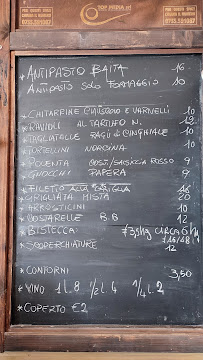 TOP MEDIA srl
* ANTIPASTO BAITA 16
ANTIPASTO SOLO FORMAGGIO 10
* CHITARRINE 10
* RAVIOLI AL TARTUFO N. 12
* TAGLIATELLE RAGÙ di CINGHIALE 10
* TORTELLINI NORCINA 10
* POLENTA COST/SALSICCIA ROSSO 9
* GNOCCHI PAPERA 9
* FILETTO ALLA GRIGLIA 16
* GRIGLIATA MISTA 20
* ARROSTICINI 10
* COSTARELLE B.B 12
* BISTECCA
* SCOPERCHIATURE 12
* CONTORNI 3,50
* VINO 1 l. 8 1/2 l. 4 1/4 l. 2
* COPERTO €2